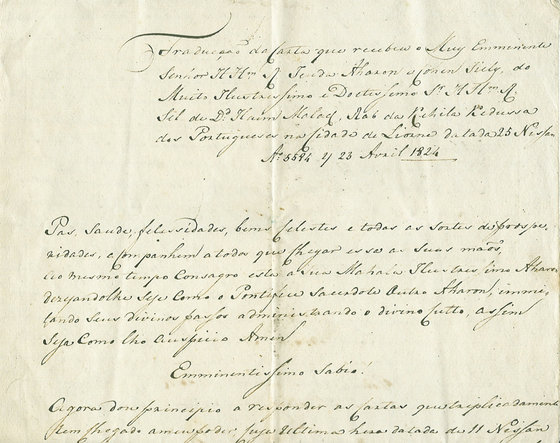 Traducção da Carta que recebeu o Muy Emminente
Senhor H Hm R Jeuda Aharon aConen Siely, do
Muito Ilustrissimo e Doctissimo Sr. H Hm R.
Sel de Da Haim Malaq, Rab da Kehila Kedussa
dos Portugueses na sidade de Liorne datada 25 Nissan
Ao 5584 y 23 Avril 1824
Pas, Saude, felissidades, bems Celestes e todas as sortes de prospe
ridades, acompanhem atodos que chegar essa as suas maõs,
ao mesmo tempo Consagro esta a Sua Mahala Ilustrissimo Aharon
dezejandolhe Seja Como o Pontifice Sacerdote Outro Aharon, immi
tando Seus divinos passos administrando o divino Cutto, assim
Seja Como lho Auspicio Amen
Emminentissimo Sabio!
Agora dou principio a responder as Cartas que triplicadament
tem chegado ameu poder Suja Ultima hera datada de 11 Neissan